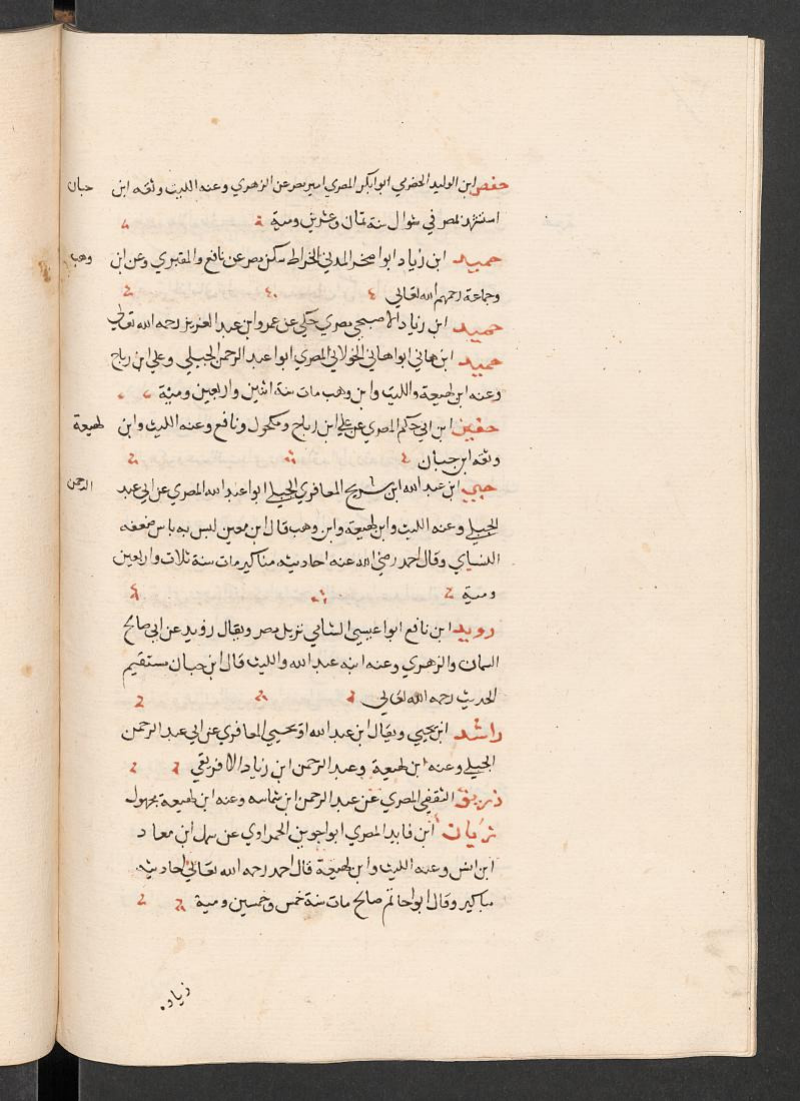 حفص ابن الوليد الحضرمي ابوا بكر المصري امير مصر عن الزهري وعنه الليث وثقه ابن حبان
استشهد بمصر في شوال سنة ثمان وعشرين ومية
حميد ابن زياد ابوا صخر المدني الخراط سكن مصر عن نافع والمقبري وعن ابن وهب
وجماعة رحمهم الله تعالى
حميد ابن زياد الاصبحي مصري حكي عن عمر وابن عبد العزيز رحمه الله تعالى
حميد ابن هاني ابوا هاني الخولاني المصري ابوا عبد الرحمن الجبيلي وعلي ابن رباح
وعنه ابن لهيعة والليث وابن وهب مات سنة اثنين واربعين ومئية
حنين ابن ابي حكم المصري عن علي ابن رباح ومكحول ونافع وعنه الليث وابن لهيعة
وثقه ابن حبان
حيي ابن عبد الله ابن شريح المعافري الجبلي ابوا عبد الله المصري عن ابي عبد الرحمن
الجبيلي وعنه الليث وابن لهيعة وابن وهب قال ابن معين ليس به باس ضعفه
النساي وقال احمد رضي الله عنه احاديثه مناكير مات سنة ثلاث واربعين
ومية
رويد ابن نافع ابوا عيسي الشامي نزيل مصر ويقال رؤيد عن ابي صالح
السمان والزهري وعنه ابنه عبد الله والليث قال ابن حبان مستقيم
الحديث رحمه الله تعالى
راشد ابن يحيي ويقال ابن عبد الله او يحيي المعافري عن ابي عبد الرحمن
الجبيلي وعنه ابن لهيعة وعبد الرحمن ابن زياد الافريقي
زريق الثقفي المصري عن عبد الرحمن ابن شماسه وعنه ابن لهيعة مجهول
زبان ابن فايد المصري ابوا جوين الحمراوي عن سهل ابن معاد
ابن انس وعنه الليث وابن لهيعة قال احمد رحمه الله تعالى احاديثه
مناكير وقال ابوا حاتم صالح مات سنة خمس وخمسين ومية
زياد